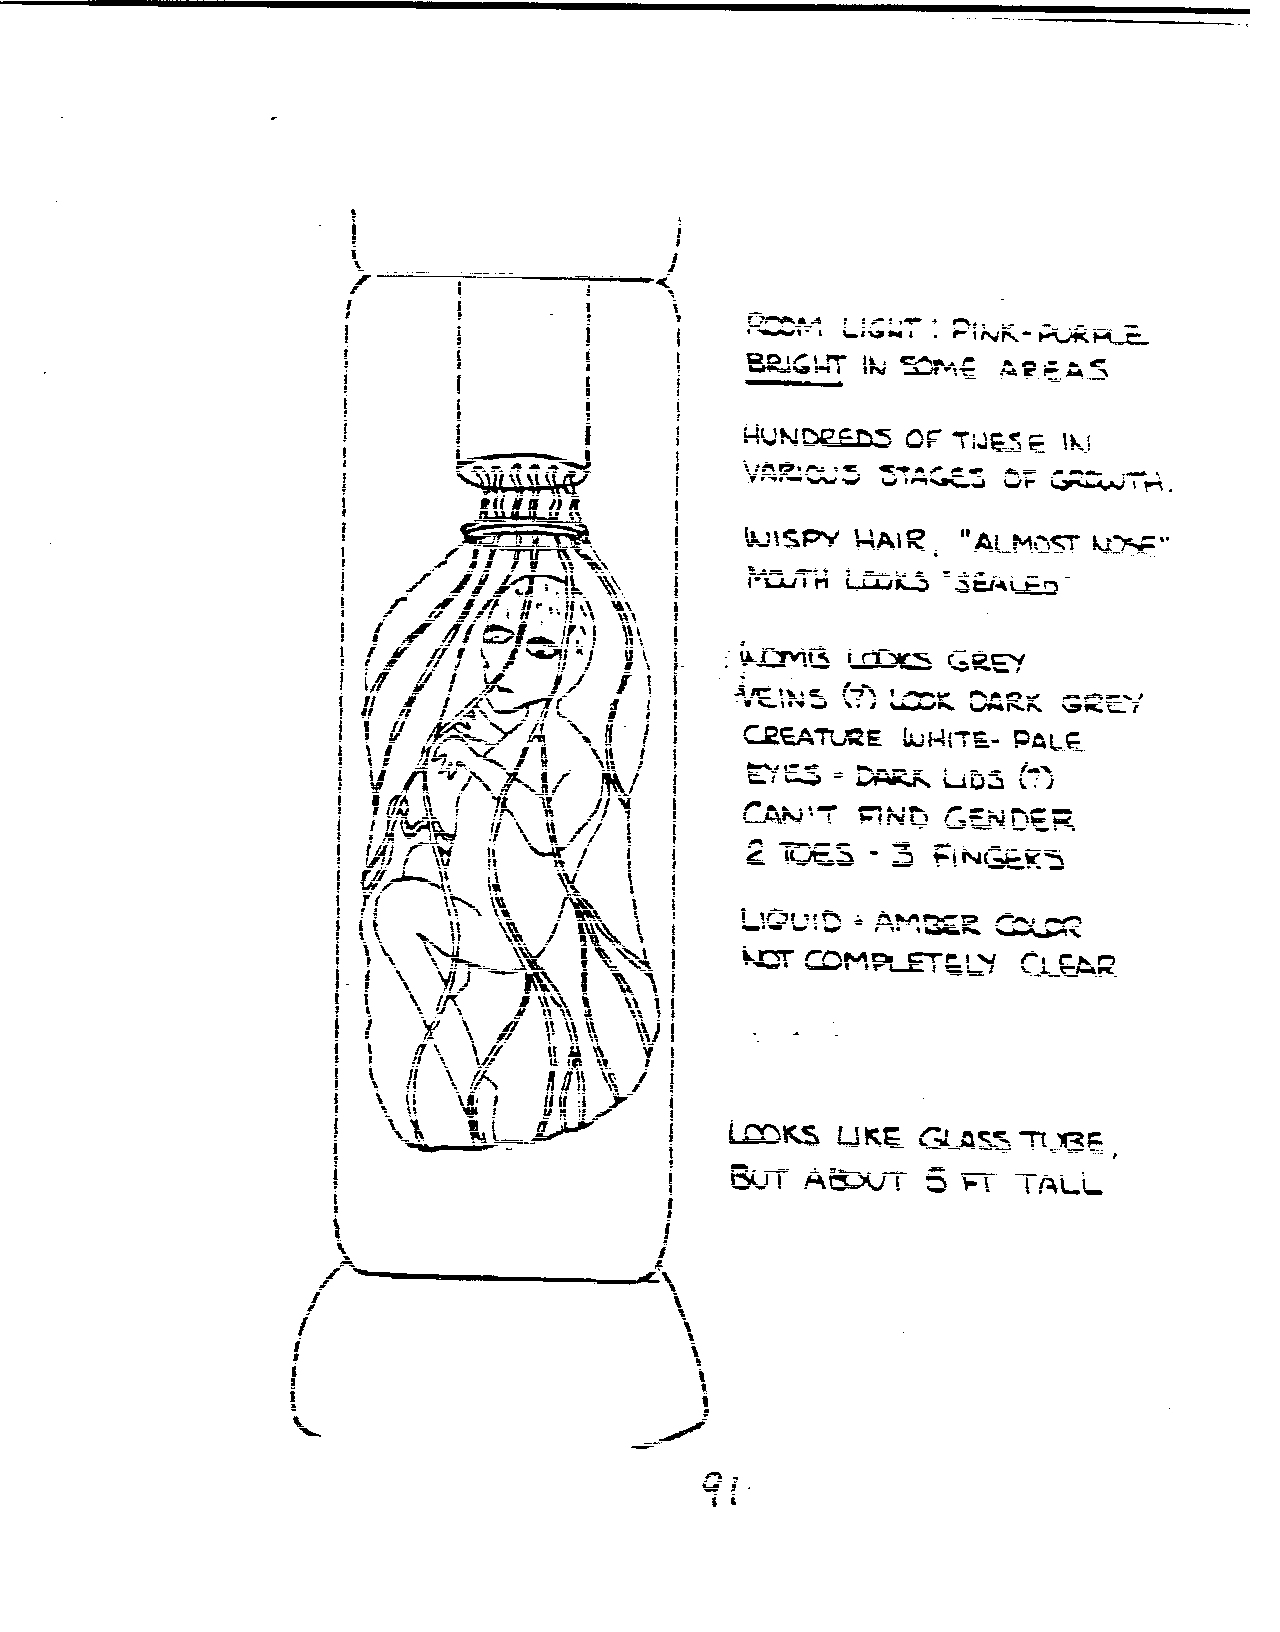 ROOM LIGHT: PINK-PURPLE
BRIGHT IN SOME AREAS
HUNDREDS OF THESE IN
VARIOUS STAGES OF GROWTH.
WISPY HAIR, "ALMOST NOSE"
MOUTH LOOKS "SEALED"
WOMB LOOKS GREY
VEINS (?) LOOK DARK GREY
CREATURE WHITE-PALE
EYES = DARK LIDS (?)
CAN'T FIND GENDER
2 TOES - 3 FINGERS
LIQUID = AMBER COLOR
NOT COMPLETELY CLEAR
LOOKS LIKE GLASS TUBE,
BUT ABOUT 5 FT TALL
91